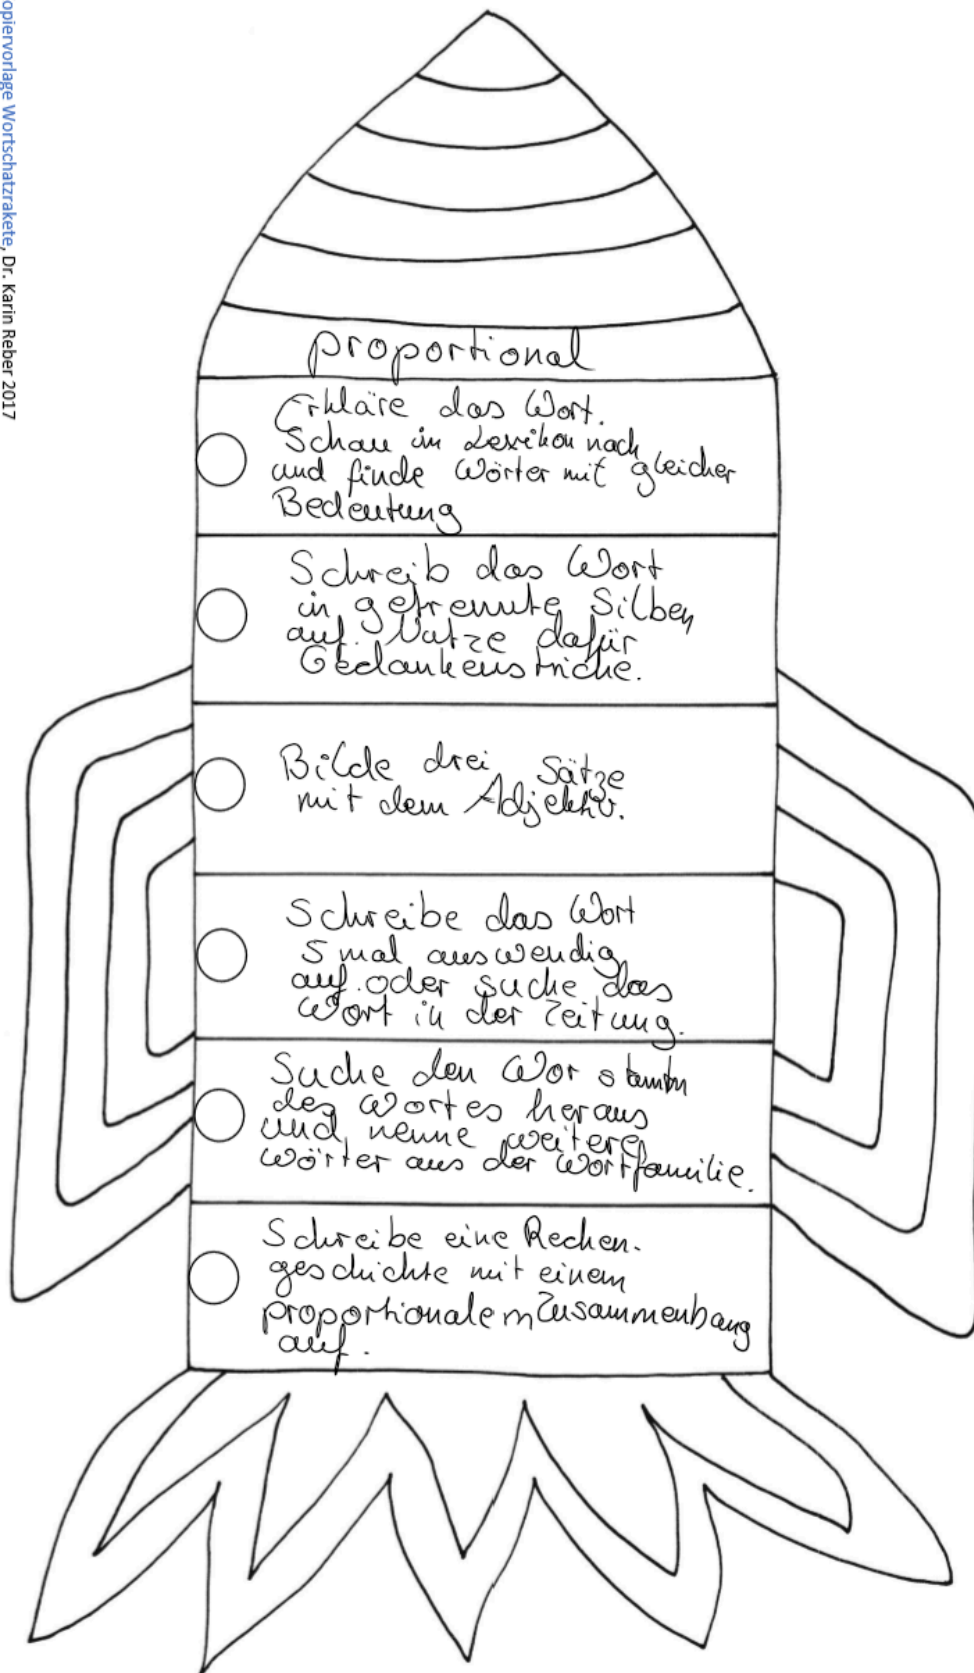 opiervorlage Wortschatzrakete, Dr. Karin Reber 2017
proportional
Erkläre das Wort.
Schau im Lexikon nach
und finde Wörter mit gleicher
Bedeutung
Schreib das Wort
in getrennte Silben
auf. Nutze dafür
Gedankenstriche.
Bilde drei Sätze
mit dem Adjektiv.
Schreibe das Wort
5 mal auswendig
auf oder suche das
Wort in der Zeitung.
Suche den Wor stamm
des Wortes heraus
und nenne weitere
Wörter aus der Wortfamilie.
Schreibe eine Rechen-
geschichte mit einem
proportionalem Zusammenhang
auf.